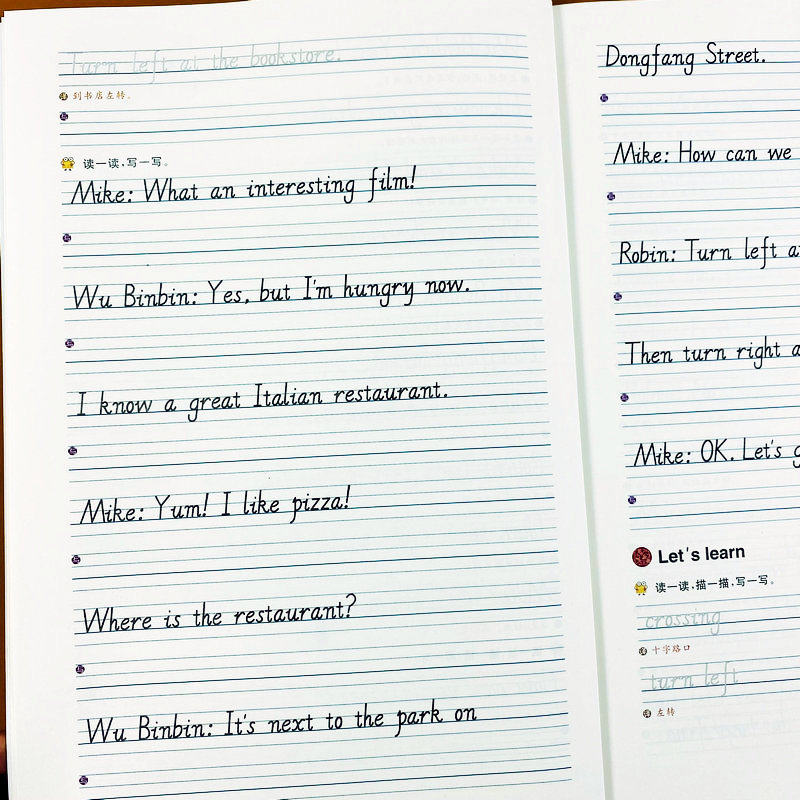 Turn left at the bookstore.
译 到书店左转。
读一读,写一写。
Mike: What an interesting film!
Wu Binbin: Yes, but I'm hungry now.
I know a great Italian restaurant.
Mike: Yum! I like pizza!
Where is the restaurant?
Wu Binbin: It's next to the park on
Dongfang Street.
Mike: How can we
Robin: Turn left
Then turn right
Mike: OK. Let's
Let's learn
读一读,描一描,写一写。
crossing
译 十字路口
turn left
译 左转